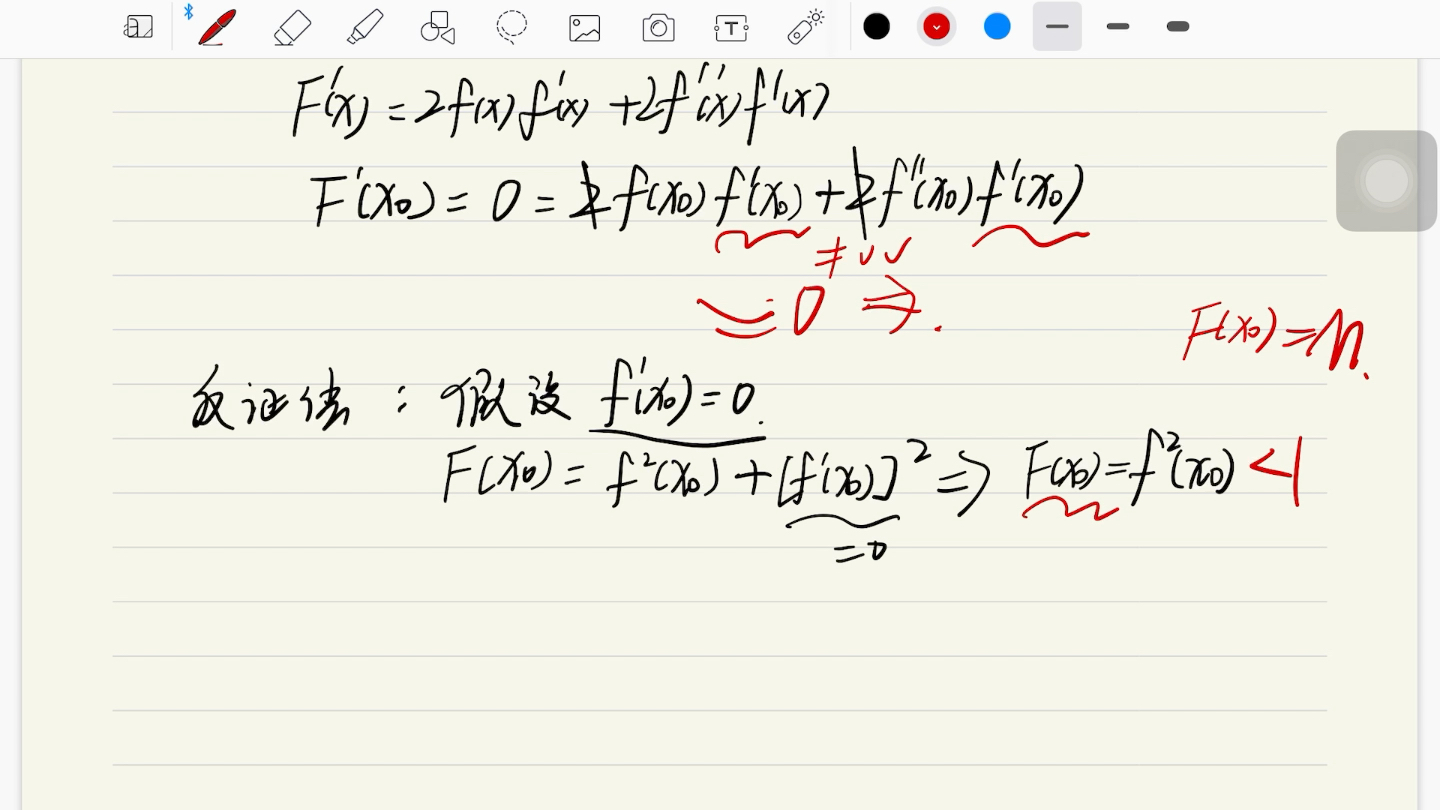 F'(x) = 2f(x)f'(x) + 2f''(x)f'(x)
F'(x₀) = 0 = 2f(x₀)f'(x₀) + 2f''(x₀)f'(x₀)
≠
= 0 ⇒.
F(x₀) = M.
反证法：假设 f'(x₀) = 0.
F(x₀) = f²(x₀) + [f'(x₀)]² ⇒ F(x₀) = f²(x₀) < 1
= 0